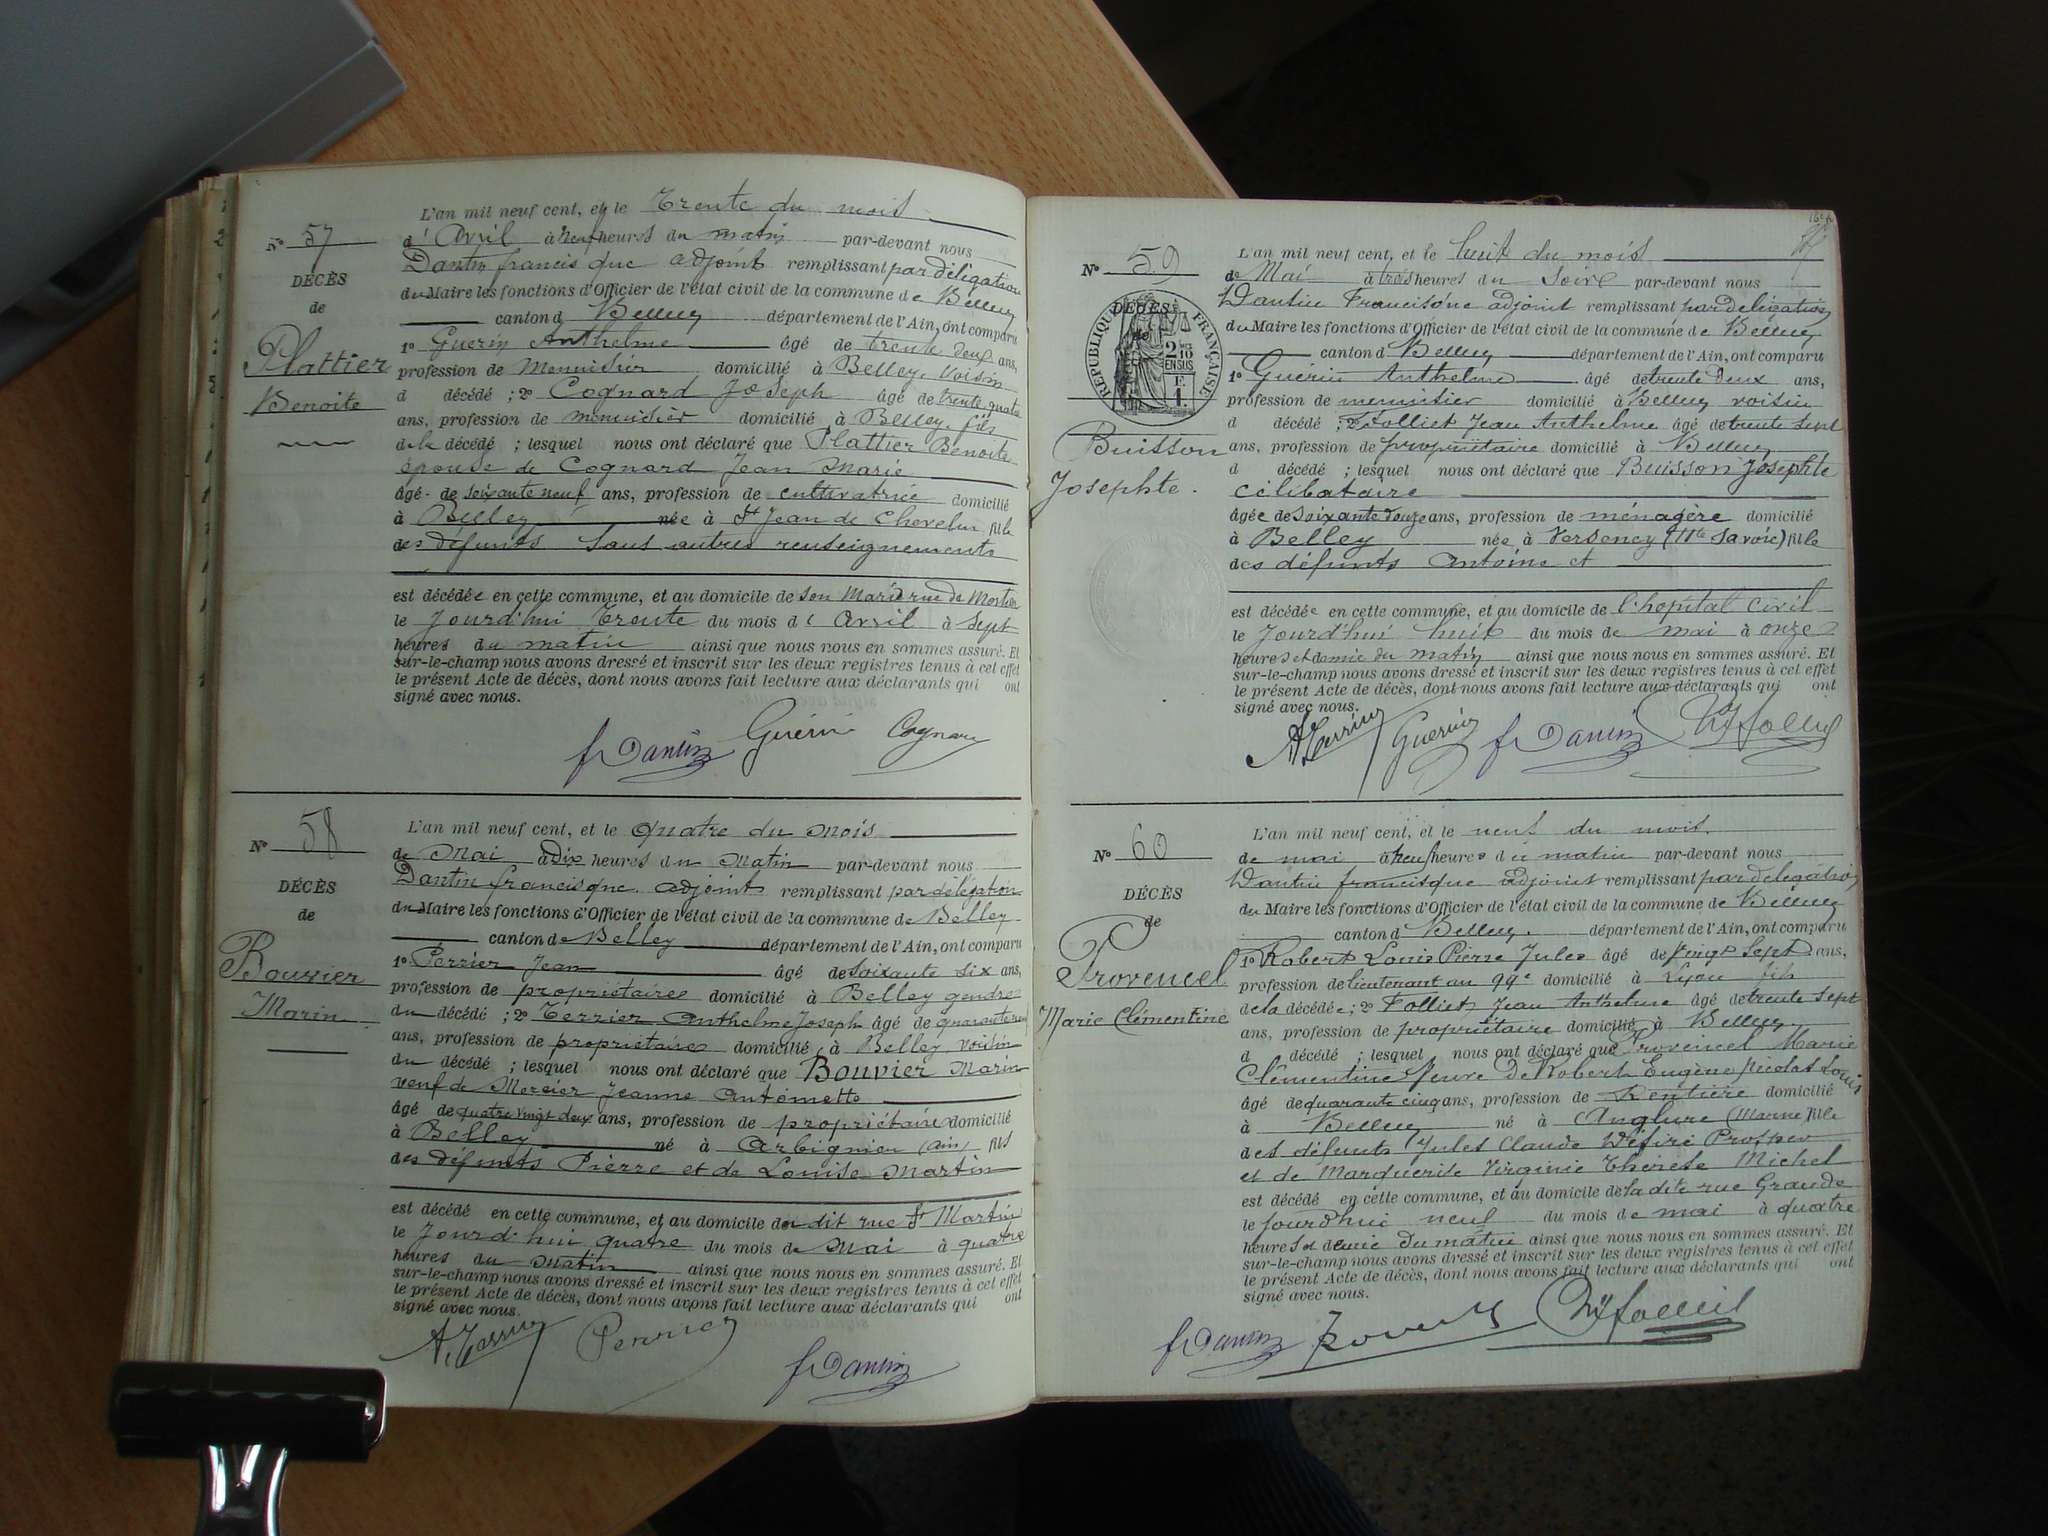 L'an mil neuf cent, et le Trente du mois
N° 57
d' Avril à neuf heures du matin par-devant nous
Dantin francisque adjoint remplissant par délégation
DÉCÈS
du Maire les fonctions d'Officier de l'état civil de la commune de Belley
de
canton d Belley département de l'Ain, ont comparu
1° Guerin Anthelme âgé de trente deux ans,
Plattier
profession de Menuisier domicilié à Belley, voisin
Benoite
d décédé ; 2° Cognard Joseph âgé de trente quatre
ans, profession de menuisier domicilié à Belley, fils
de la décédé ; lesquel nous ont déclaré que Plattier Benoite
épouse de Cognard Jean Marie
âgé de soixante neuf ans, profession de cultivatrice domicilié
à Belley née à St Jean de Chevelu fille
des défunts Sans autres renseignements
est décédée en cette commune, et au domicile de son Mari rue de
le Jourd'hui Trente du mois d' Avril à Sept
heures du matin ainsi que nous nous en sommes assuré. Et
sur-le-champ nous avons dressé et inscrit sur les deux registres tenus à cet effet
le présent Acte de décès, dont nous avons fait lecture aux déclarants qui ont
signé avec nous.
f Dantin Guérin Cognard
L'an mil neuf cent, et le quatre du mois
N° 58
de Mai à Dix heures du Matin par-devant nous
Dantin francisque adjoint remplissant par délégation
DÉCÈS
du Maire les fonctions d'Officier de l'état civil de la commune de Belley
de
canton de Belley département de l'Ain, ont comparu
Bouvier
1° Perrier Jean âgé de soixante six ans,
profession de propriétaire domicilié à Belley gendre
Marin
du décédé ; 2° Terrier Anthelme Joseph âgé de
ans, profession de propriétaire domicilié à Belley voisin
du décédé ; lesquel nous ont déclaré que Bouvier Marin
veuf de Mercier Jeanne Antoinette
âgé de quatre vingt deux ans, profession de propriétaire domicilié
à Belley né à Arbignieu (Ain) fils
des défunts Pierre et de Louise Martin
est décédé en cette commune, et au domicile du dit rue St Martin
le Jourd'hui quatre du mois de Mai à quatre
heures du Matin ainsi que nous nous en sommes assuré. Et
sur-le-champ nous avons dressé et inscrit sur les deux registres tenus à cet effet
le présent Acte de décès, dont nous avons fait lecture aux déclarants qui ont
signé avec nous.
A. Terrier Perrier
f Dantin
L'an mil neuf cent, et le huit du mois
N° 59
de Mai à trois heures du Soire par-devant nous
Dantin Francisque adjoint remplissant par délégation
DÉCÈS
de
RÉPUBLIQUE FRANÇAISE
2 MES 10 EN SUS
F. 1.
du Maire les fonctions d'Officier de l'état civil de la commune de Belley
canton d Belley département de l'Ain, ont comparu
1° Guérin Anthelme âgé de trente deux ans,
profession de menuisier domicilié à Belley voisin
d décédé ; 2° Folliet Jean Anthelme âgé de trente sept
Buisson
ans, profession de propriétaire domicilié à Belley
d décédé ; lesquel nous ont déclaré que Buisson Josephte
Josephte.
célibataire
âgée de soixante douze ans, profession de ménagère domicilié
à Belley née à Versoncy (Hte Savoie) fille
des défunts Antoine et
est décédée en cette commune, et au domicile de l'hopital civil
le Jourd'hui huit du mois de mai à onze
heures et demie du matin ainsi que nous nous en sommes assuré. Et
sur-le-champ nous avons dressé et inscrit sur les deux registres tenus à cet effet
le présent Acte de décès, dont nous avons fait lecture aux déclarants qui ont
signé avec nous.
A. Terrier Guerin f Dantin Folliet
L'an mil neuf cent, et le neuf du mois
N° 60
de mai à neuf heures du matin par-devant nous
Dantin francisque adjoint remplissant par délégation
DÉCÈS
du Maire les fonctions d'Officier de l'état civil de la commune de Belley
de
canton d Belley. département de l'Ain, ont comparu
Provencel
1° Robert Louis Pierre Jules âgé de vingt sept ans,
profession de lieutenant au 99e domicilié à Lyon fils
Marie Clémentine
de la décédée ; 2° Folliet Jean Anthelme âgé de trente sept
ans, profession de propriétaire domicilié à Belley
d décédé ; lesquel nous ont déclaré que Provencel Marie
Clémentine Veuve De Robert Eugène Nicolas Louis
âgé de quarante cinq ans, profession de Rentière domicilié
à Belley né à Anglure (Marne) fille
des défunts Jules Claude Désiré Prosper
et de Marguerite Virginie Thérèse Michel
est décédé en cette commune, et au domicile de la dite rue Grande
le Jourd'hui neuf du mois de mai à quatre
heures et demie du matin ainsi que nous nous en sommes assuré. Et
sur-le-champ nous avons dressé et inscrit sur les deux registres tenus à cet effet
le présent Acte de décès, dont nous avons fait lecture aux déclarants qui ont
signé avec nous.
f Dantin Robert Folliet